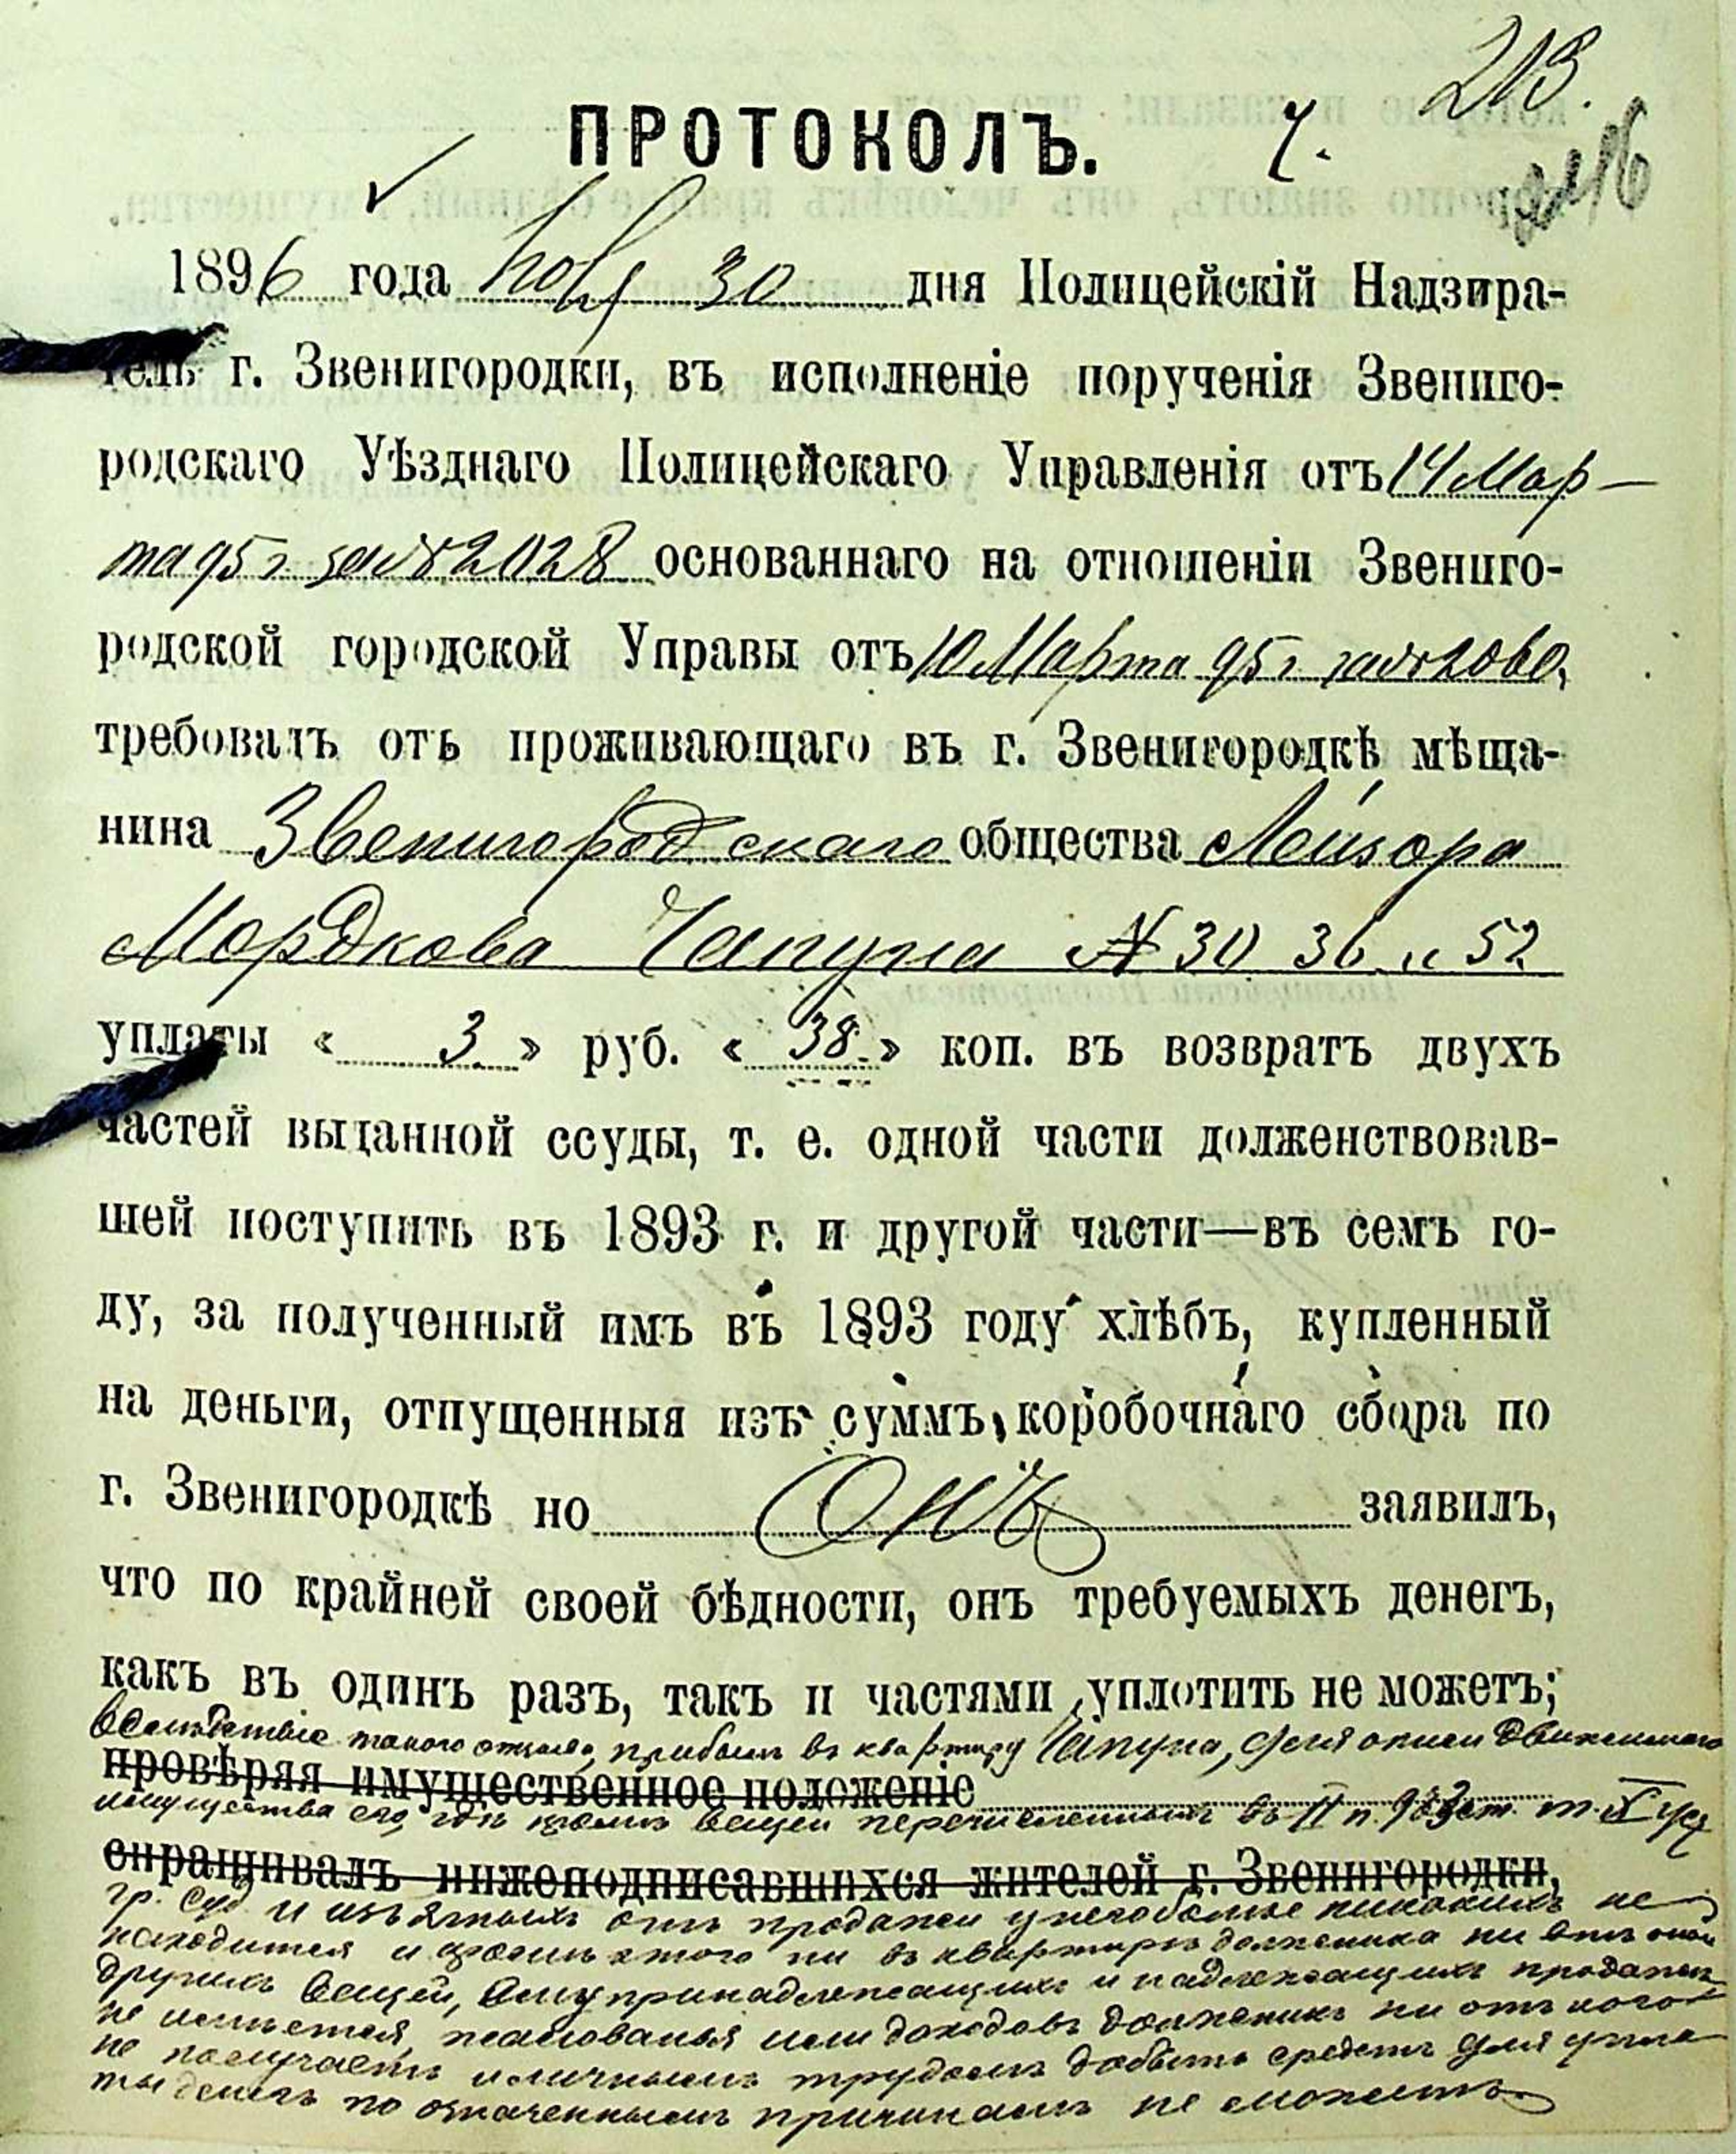 213.
ПРОТОКОЛЪ. 7.
216
1896 года Ноя 30 дня Полицейскій Надзира-
тель г. Звенигородки, въ исполненіе порученія Звениго-
родскаго Уѣзднаго Полицейскаго Управленія отъ 14 Мар-
та 95 г за № 2028 основаннаго на отношеніи Звениго-
родской городской Управы отъ 10 Марта 95 г за № 2060,
требовалъ отъ проживающаго въ г. Звенигородкѣ мѣща-
нина Звенигородскаго общества Лейзора
Мордкова Чапуна № 30 36 и 52
уплаты « 3 » руб. « 38 » коп. въ возвратъ двухъ
частей выданной ссуды, т. е. одной части долженствовав-
шей поступить въ 1893 г. и другой части—въ семъ го-
ду, за полученный имъ въ 1893 году хлѣбъ, купленный
на деньги, отпущенныя изъ суммъ, коробочнаго сбора по
г. Звенигородкѣ но Онъ заявилъ,
что по крайней своей бѣдности, онъ требуемыхъ денегъ,
какъ въ одинъ разъ, такъ и частями уплотить не можетъ;
вслѣдствіе такого отзыва, прибылъ въ квартиру Чапуна, для описи движимаго
провѣряя имущественное положеніе
имущества его, гдѣ кромѣ вещей перечисленныхъ въ II п. 973 ст. т. X
спрашивалъ нижеподписавшихся жителей г. Звенигородки,
гр. суд. и изъятыхъ отъ продажи у него больше никакихъ не
находится и кромѣ этого ни въ квартирѣ должника ни внѣ оной
другихъ вещей, ему принадлежащихъ и надлежащихъ продажѣ
не имѣется, жалованья или доходовъ должникъ ни отъ кого
не получаетъ и личнымъ трудомъ добыть средств для упла
ты денегъ по означеннымъ причинамъ не можетъ